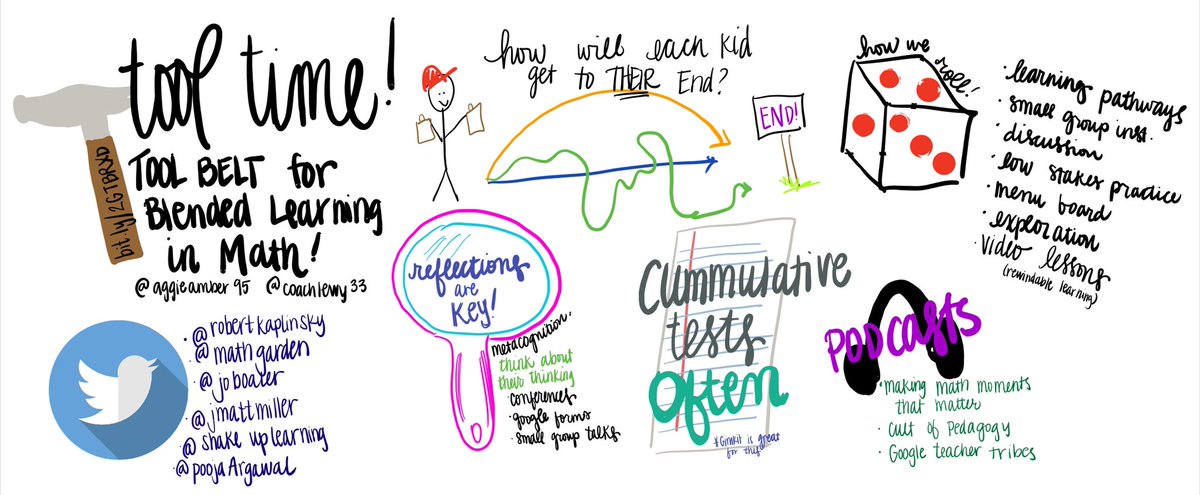 tool time!
TOOL BELT for
Blended Learning
in Math!
@aggieamber95 @coachlewy33
bit.ly/2GTBRXD
how will each kid
get to THEIR End?
END!
how we
roll!
• learning pathways
• small group inst.
• discussion
• low stakes practice
• menu board
• exploration
• video lessons
(rewindable learning)
• @robertkaplinsky
• @mathgarden
• @joboaler
• @jmattmiller
• @shakeuplearning
• @poojaArgawal
reflections
are
KEY!
metacognition:
think about
their thinking
• conferences
• google forms
• small group talks
Cummulative
tests
Often
*Gimkit is great
for this!
PODcasts
• making math moments
that matter
• Cult of Pedagogy
• Google teacher tribes